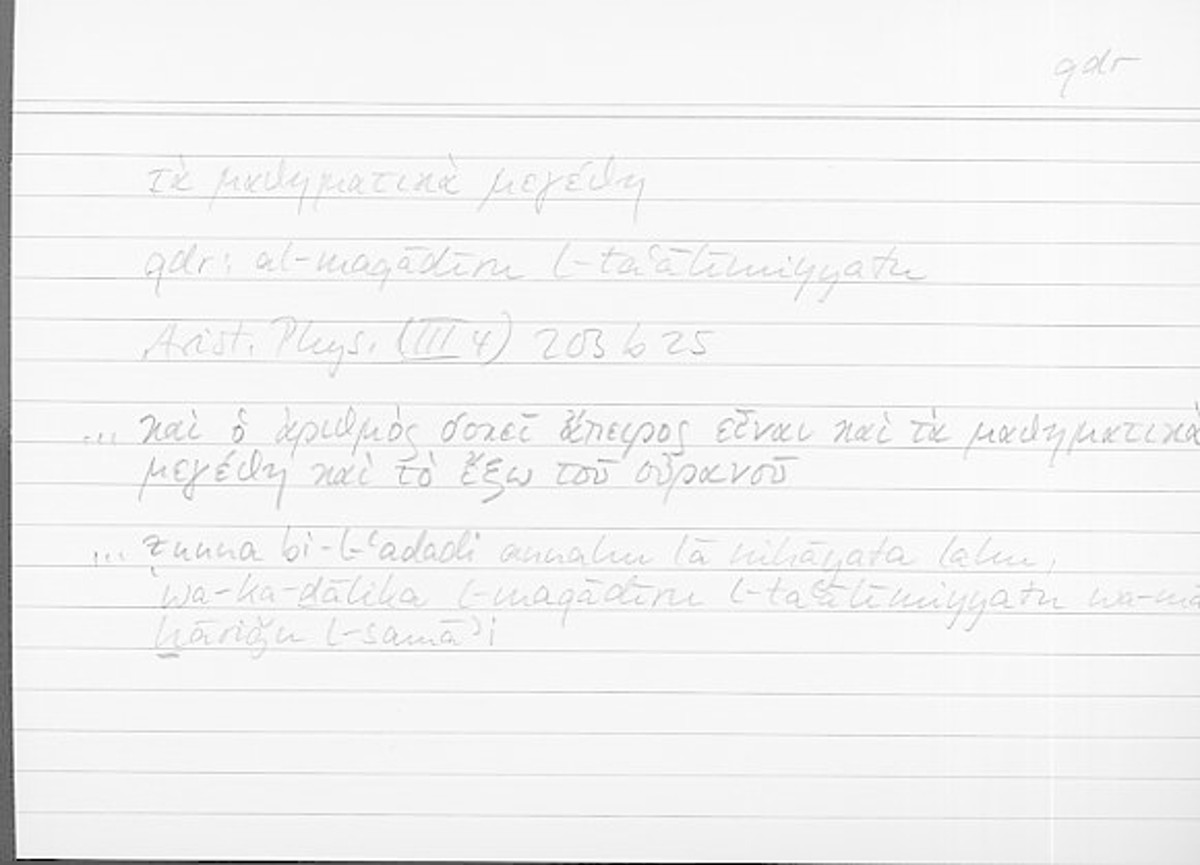 qdr
τὰ μαθηματικὰ μεγέθη
qdr: al-maqādīru l-taʿālīmiyyatu
Arist. Phys. (III 4) 203 b 25
... καὶ ὁ ἀριθμὸς δοκεῖ ἄπειρος εἶναι καὶ τὰ μαθηματικὰ
μεγέθη καὶ τὸ ἔξω τοῦ οὐρανοῦ
... ẓunna bi-l-ʿadadi annahu lā nihāyata lahu,
wa-ka-ḏālika l-maqādīru l-taʿālīmiyyatu wa-mā
ḫāriǧu l-samāʾi